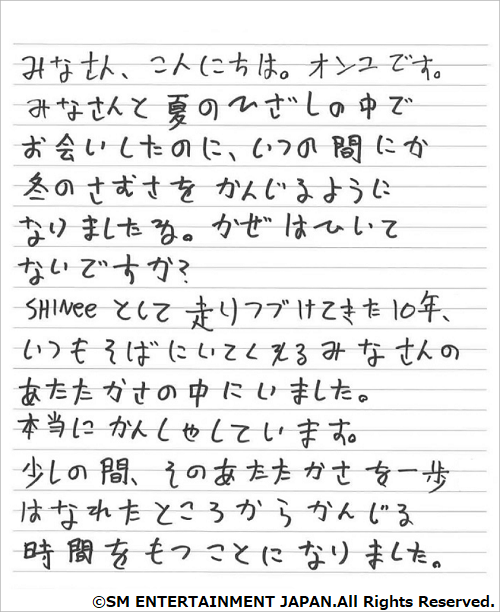 みなさん、こんにちは。オンユです。
みなさんと夏のひざしの中で
お会いしたのに、いつの間にか
冬のさむさをかんじるように
なりましたね。かぜはひいて
ないですか?
SHINeeとして走りつづけてきた10年、
いつもそばにいてくれるみなさんの
あたたかさの中にいました。
本当にかんしゃしています。
少しの間、そのあたたかさを一歩
はなれたところからかんじる
時間をもつことになりました。
©SM ENTERTAINMENT JAPAN.All Rights Reserved.